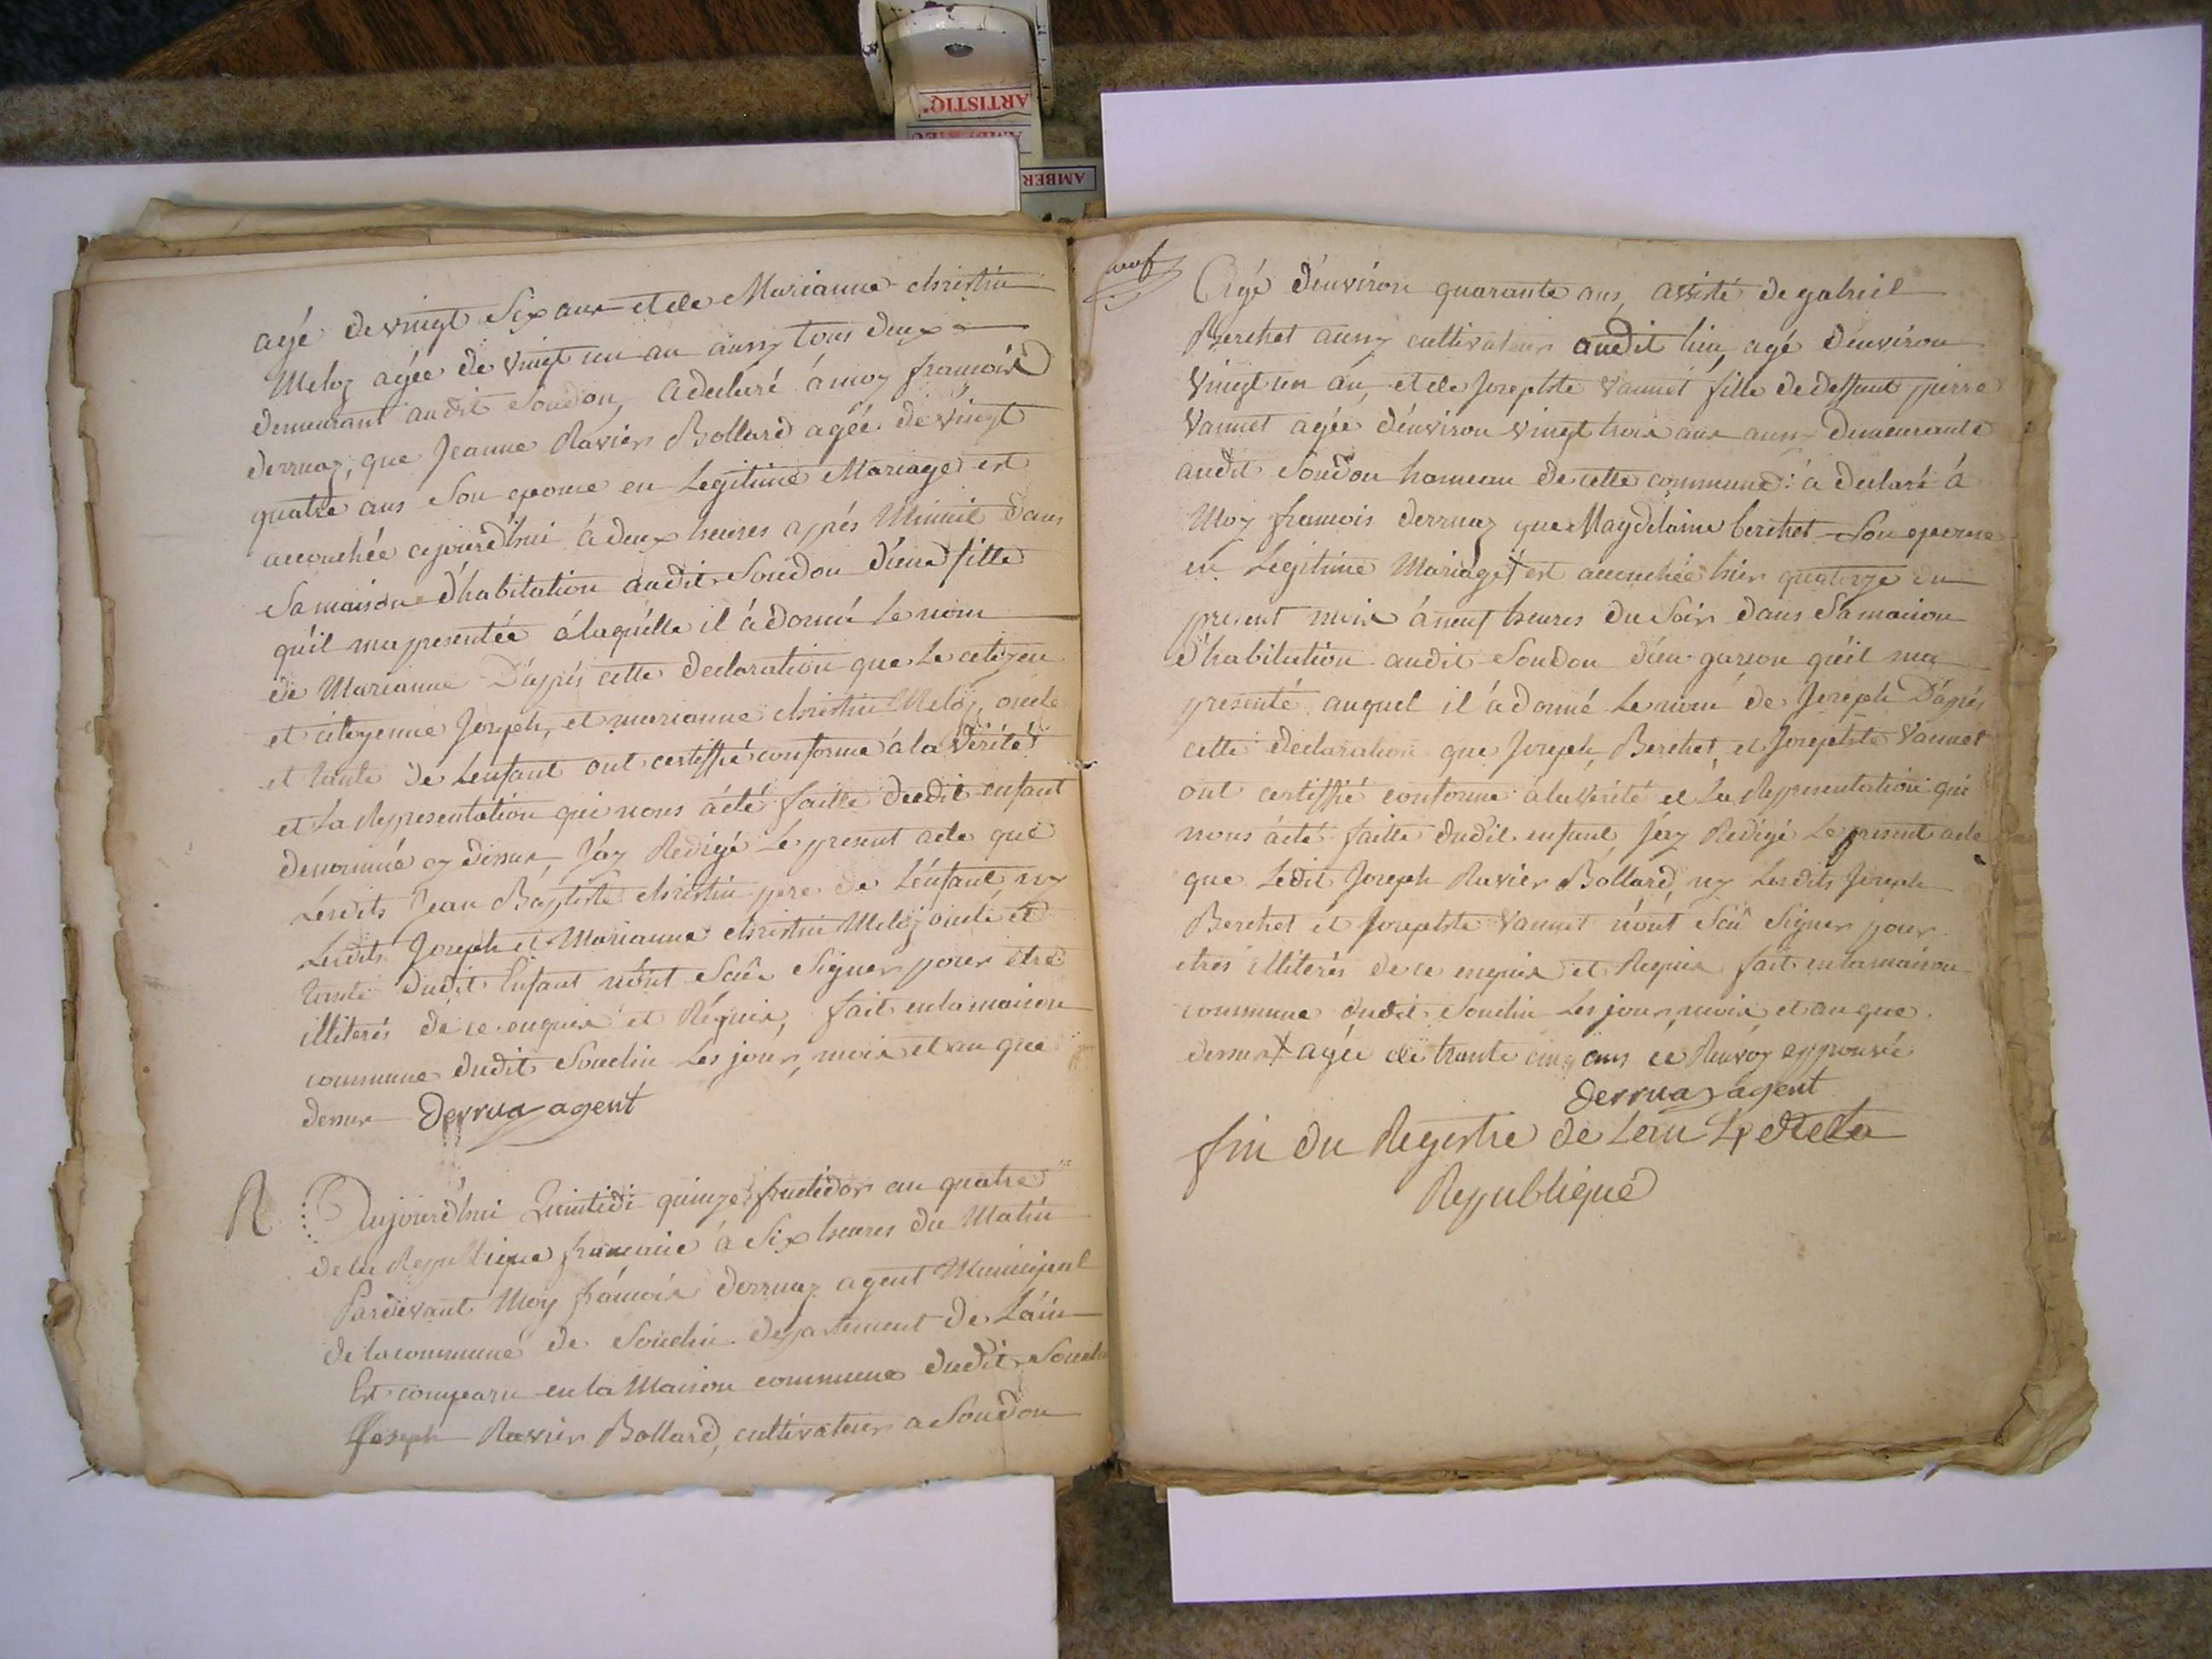 ARTISTIQ'
AMBER
agé de vingt Six ans et de Marianne christin
Meloz agée de vingt un an aussy tous deux
demeurant audit Soudon, a declaré à moy francois
derruaz, que Jeanne Ravier Bollard agéé de vingt
quatre ans Son epouse en Legitime Mariage est
accouchée ajourd'hui à deux heures après Minuit dans
Sa maison d'habitation audit Soudon d'une fille
qu'il ma presentée à laquelle il à donné Le nom
de Marianne D'après cette declaration que Le citoyen
et citoyenne Joseph, et marianne christin Meloz, oncle
et tante de L'enfant ont certiffié conforme à la verité
et La Representation qui nous à été faitte dudit enfant
denommé cy dessus, J'ay Redigé Le present acte que
Lesdits Jean Baptiste christin pere de L'enfant ny
Lesdits Joseph et Marianne christin Meloz oncle et
tante dudit Enfant n'ont Scû Signer pour etre
illiterés de ce enquis et Réquis, fait en la maison
commune dudit Souclin Les jour, mois et an que
dessus derruaz agent
R Aujourd'hui Quintidi quinze fructidor an quatre
de la Republique francaise à Six heures du Matin
Pardevant Moy francois derruaz agent Municipal
de la commune de Souclin departement de L'ain
Est comparu en la Maison commune dudit Souclin
Joseph Ravier Bollard, cultivateur a Soudon
neuf
Agé d'environ quarante ans, assisté de gabriel
Berchet aussy cultivateur audit lieu, agé d'environ
vingt un an, et de Josephte vannet fille de deffunt pierre
vannet agée d'environ vingt trois ans aussy demeurante
audit Soudon hameau de cette commune: à declaré à
Moy francois derruaz que Magdelaine berchet Son epouse
en Legitime Mariage + est accouchée hier quatorze du
present mois à neuf heures du Soir dans Sa maison
d'habitation audit Soudon d'un garcon qu'il ma
presenté auquel il à donné Le nom de Joseph D'après
cette declaration que Joseph, Berchet, et Josephte vannet
ont certiffié conforme à la verité et La Representation qui
nous àété faitte dudit enfant, J'ay Redigé Le present acte
que Ledit Joseph Ravier Bollard, ny Lesdits Joseph
Berchet et Josephte vannet n'ont Scû Signer pour
etres illiterés de ce enquis et Requis fait en la maison
commune dudit Souclin Les jour, mois et an que
dessus + agée de trante cinq ans ce Renvoy approuvée
derruaz agent
fin du Registre de L'an 4 de La
Republique